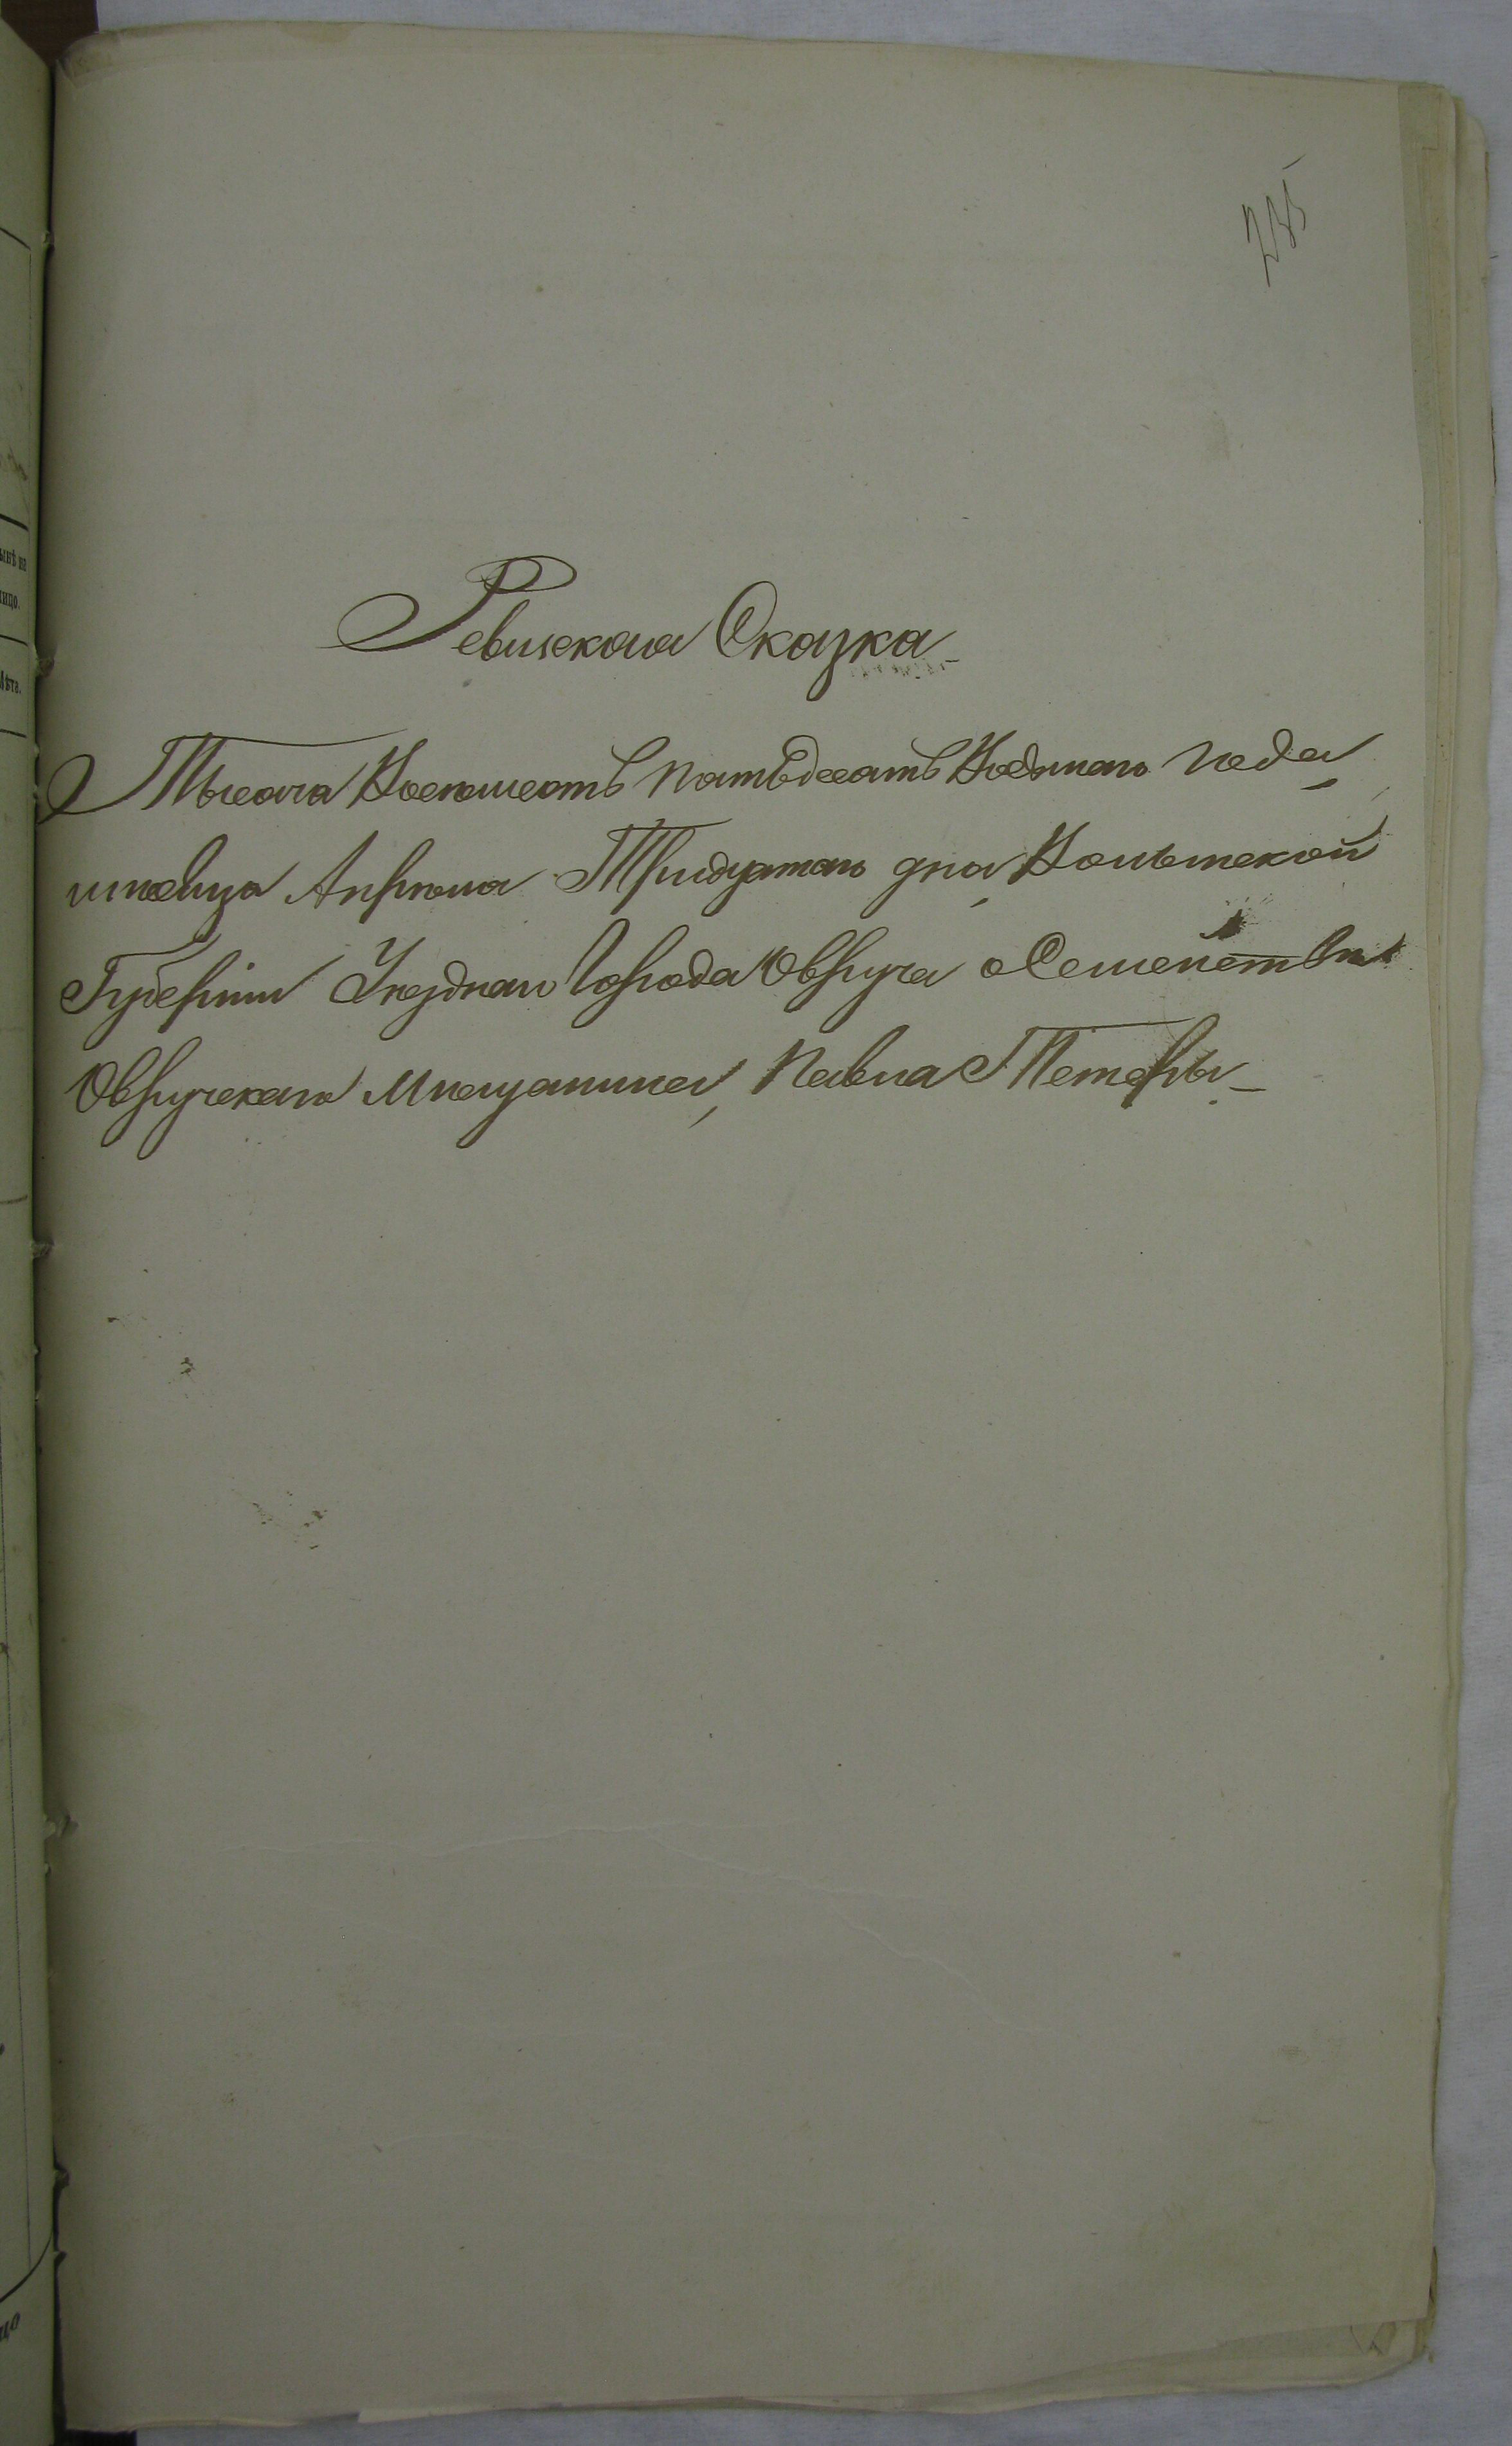 Ревизская Сказка
Тысяча Восемьсотъ Пятьдесятъ Восьмаго Года
мѣсяца Апрѣля Тридцатаго дня Волынской
Губерніи Уѣзднаго Города Овруча о Семействѣ
Овручскаго Мѣщанина, Павла Тетеры